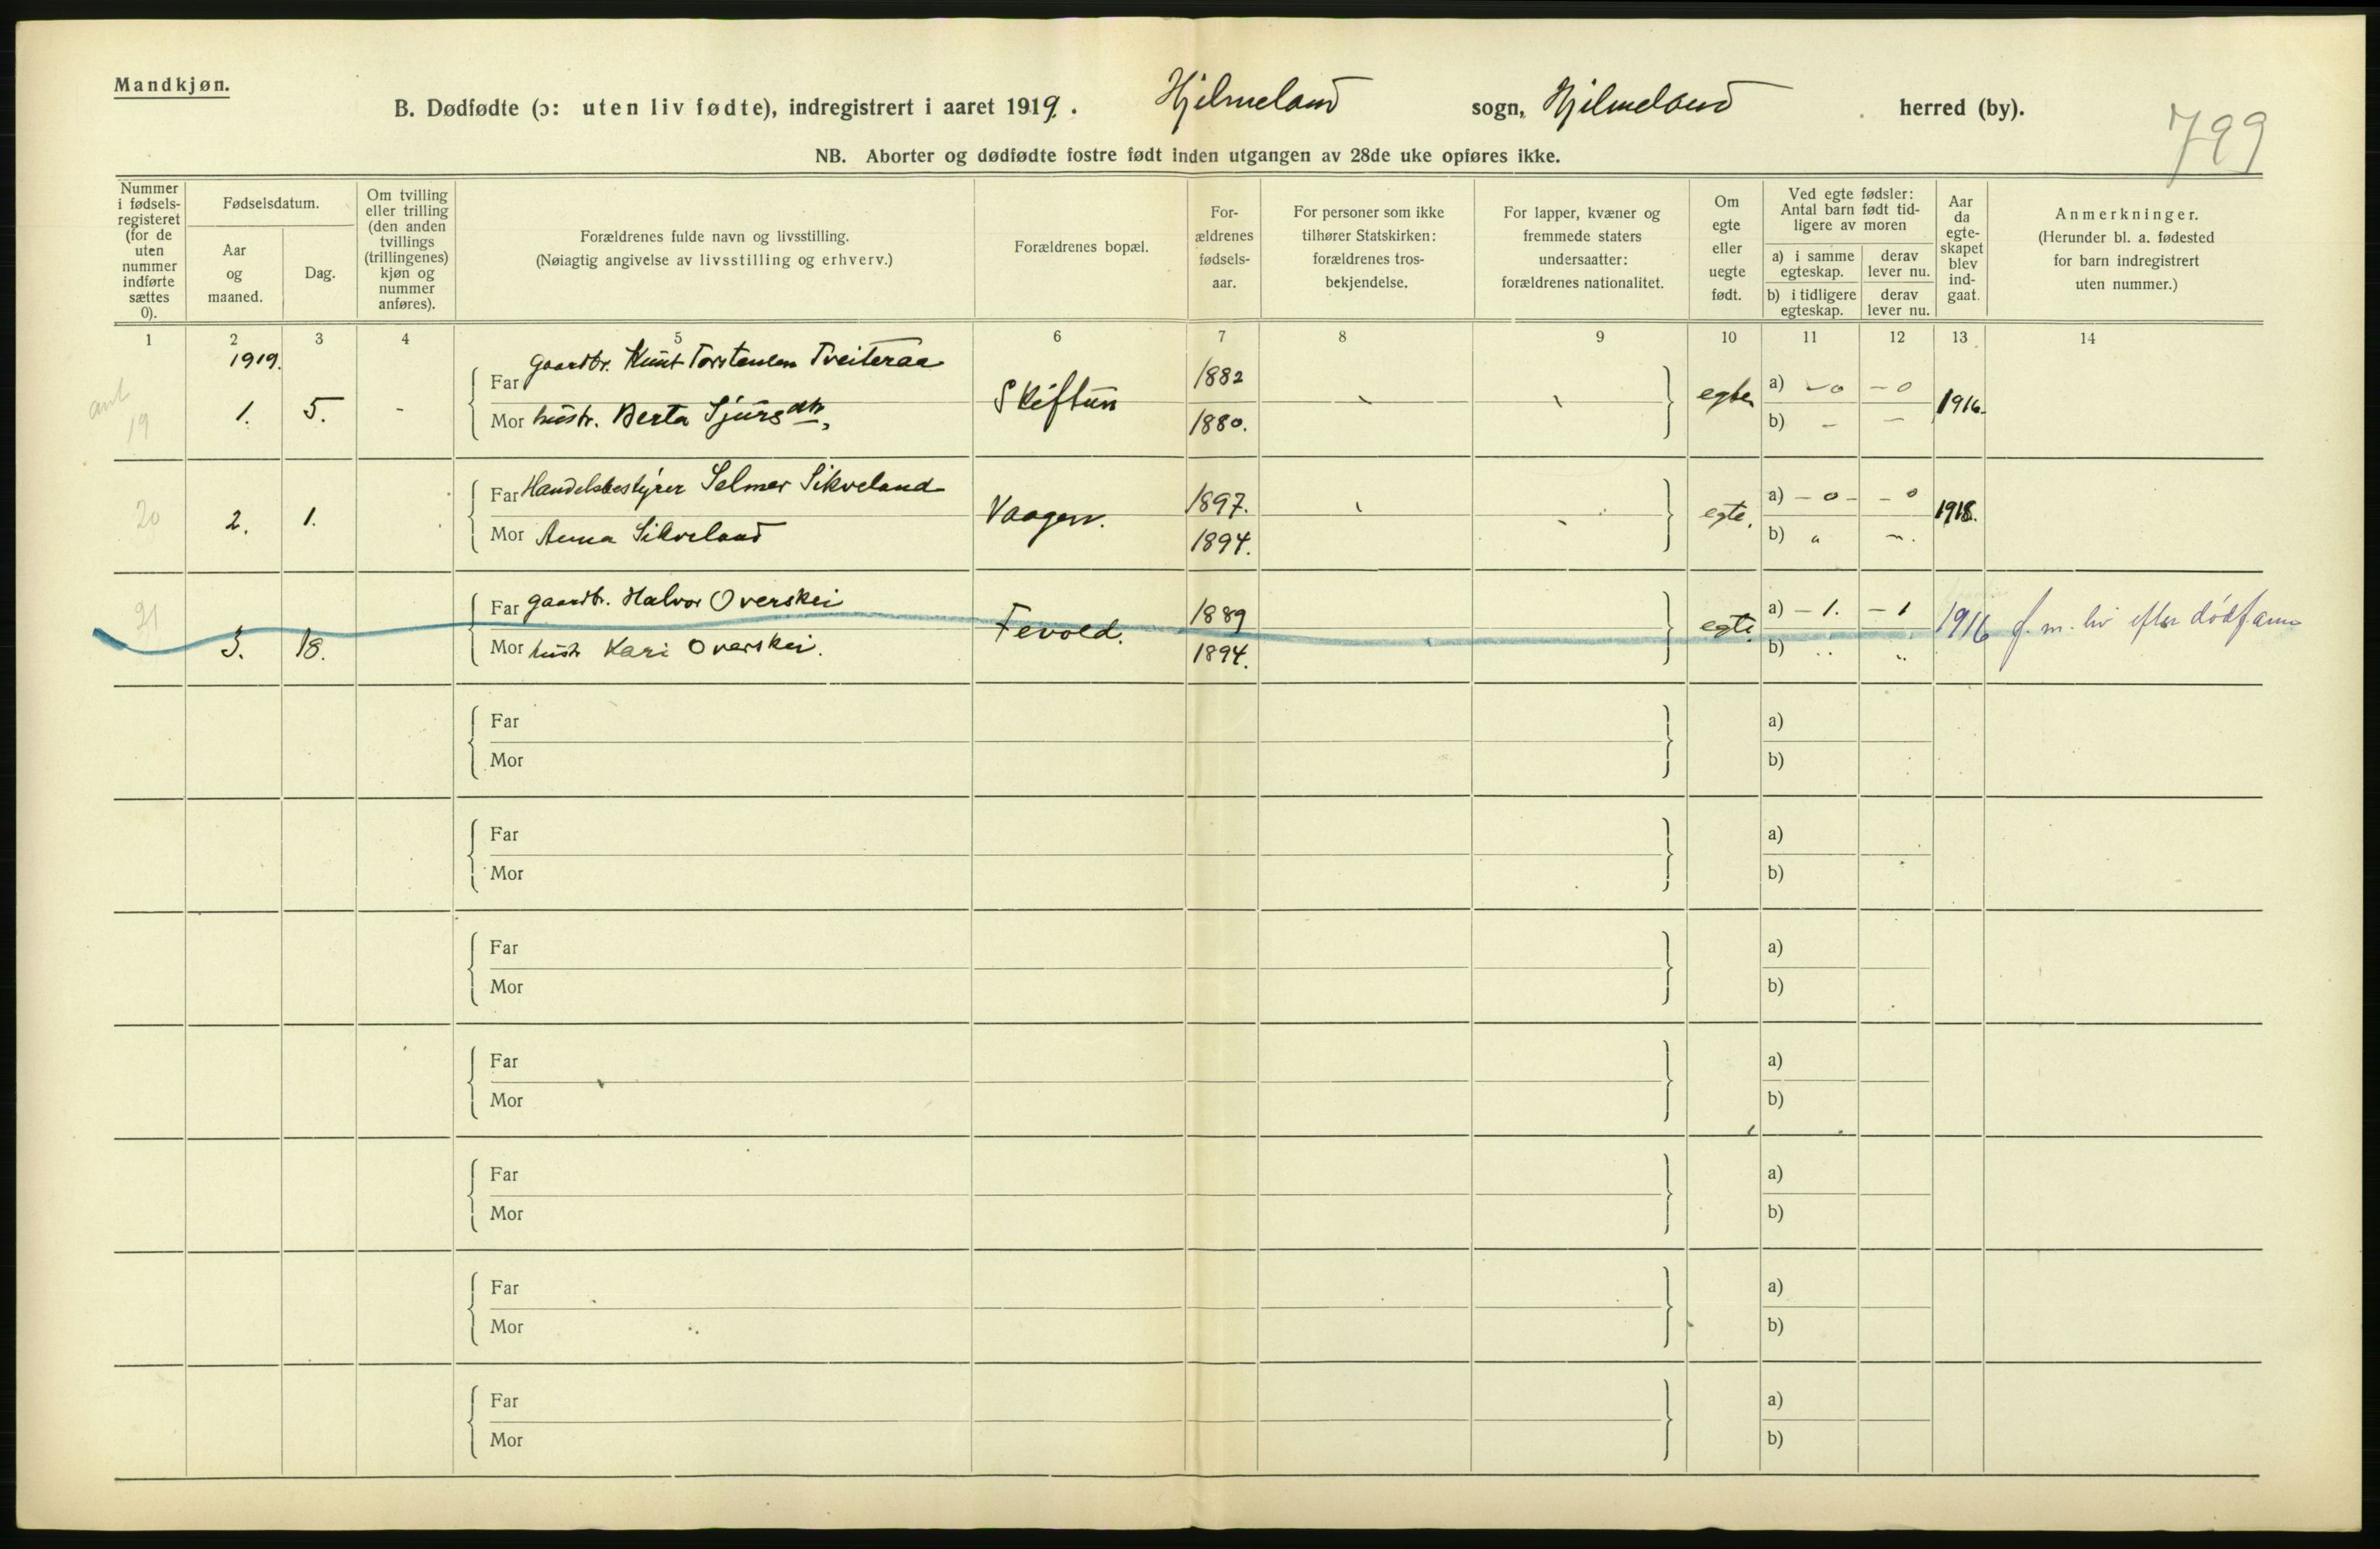 Mandkjøn.
B. Dødfødte (ɔ: uten liv fødte), indregistrert i aaret 1919. Hjelmeland sogn, Hjelmeland herred (by).
799
NB. Aborter og dødfødte fostre født inden utgangen av 28de uke opføres ikke.
Nummer i fødsels-registeret (for de uten nummer indførte sættes 0).
Fødselsdatum.
Aar og maaned.
Dag.
Om tvilling eller trilling (den anden tvillings (trillingenes) kjøn og nummer anføres).
Forældrenes fulde navn og livsstilling.
(Nøiagtig angivelse av livsstilling og erhverv.)
Forældrenes bopæl.
For-ældrenes fødsels-aar.
For personer som ikke tilhører Statskirken: forældrenes tros-bekjendelse.
For lapper, kvæner og fremmede staters undersaatter: forældrenes nationalitet.
Om egte eller uegte født.
Ved egte fødsler: Antal barn født tid-ligere av moren
a) i samme egteskap.
derav lever nu.
b) i tidligere egteskap.
derav lever nu.
Aar da egte-skapet blev ind-gaat.
Anmerkninger.
(Herunder bl. a. fødested for barn indregistrert uten nummer.)
1 2 3 4 5 6 7 8 9 10 11 12 13 14
1919.
19 1. 5. - Far gaardbr. Knut Torstensen Tveiteraa Skiftun 1882 egte a) - 0 - 0 1916.
Mor hustr. Berta Sjursdtr. 1880. b) - -
20 2. 1. Far Handelsbestyrer Selmer Sikveland Vaagen. 1897. egte. a) - 0 - - 0 1918.
Mor Anna Sikveland 1894. b) " ".
21 3. 18. Far gaardbr. Halvor Overskei Fevold. 1889 egte. a) - 1. - 1 1916 f. m. liv efter dødfanm
Mor hustr Kari Overskei. 1894. b) " "
Far a)
Mor b)
Far a)
Mor b)
Far a)
Mor b)
Far a)
Mor b)
Far a)
Mor b)
Far a)
Mor b)
Far a)
Mor b)